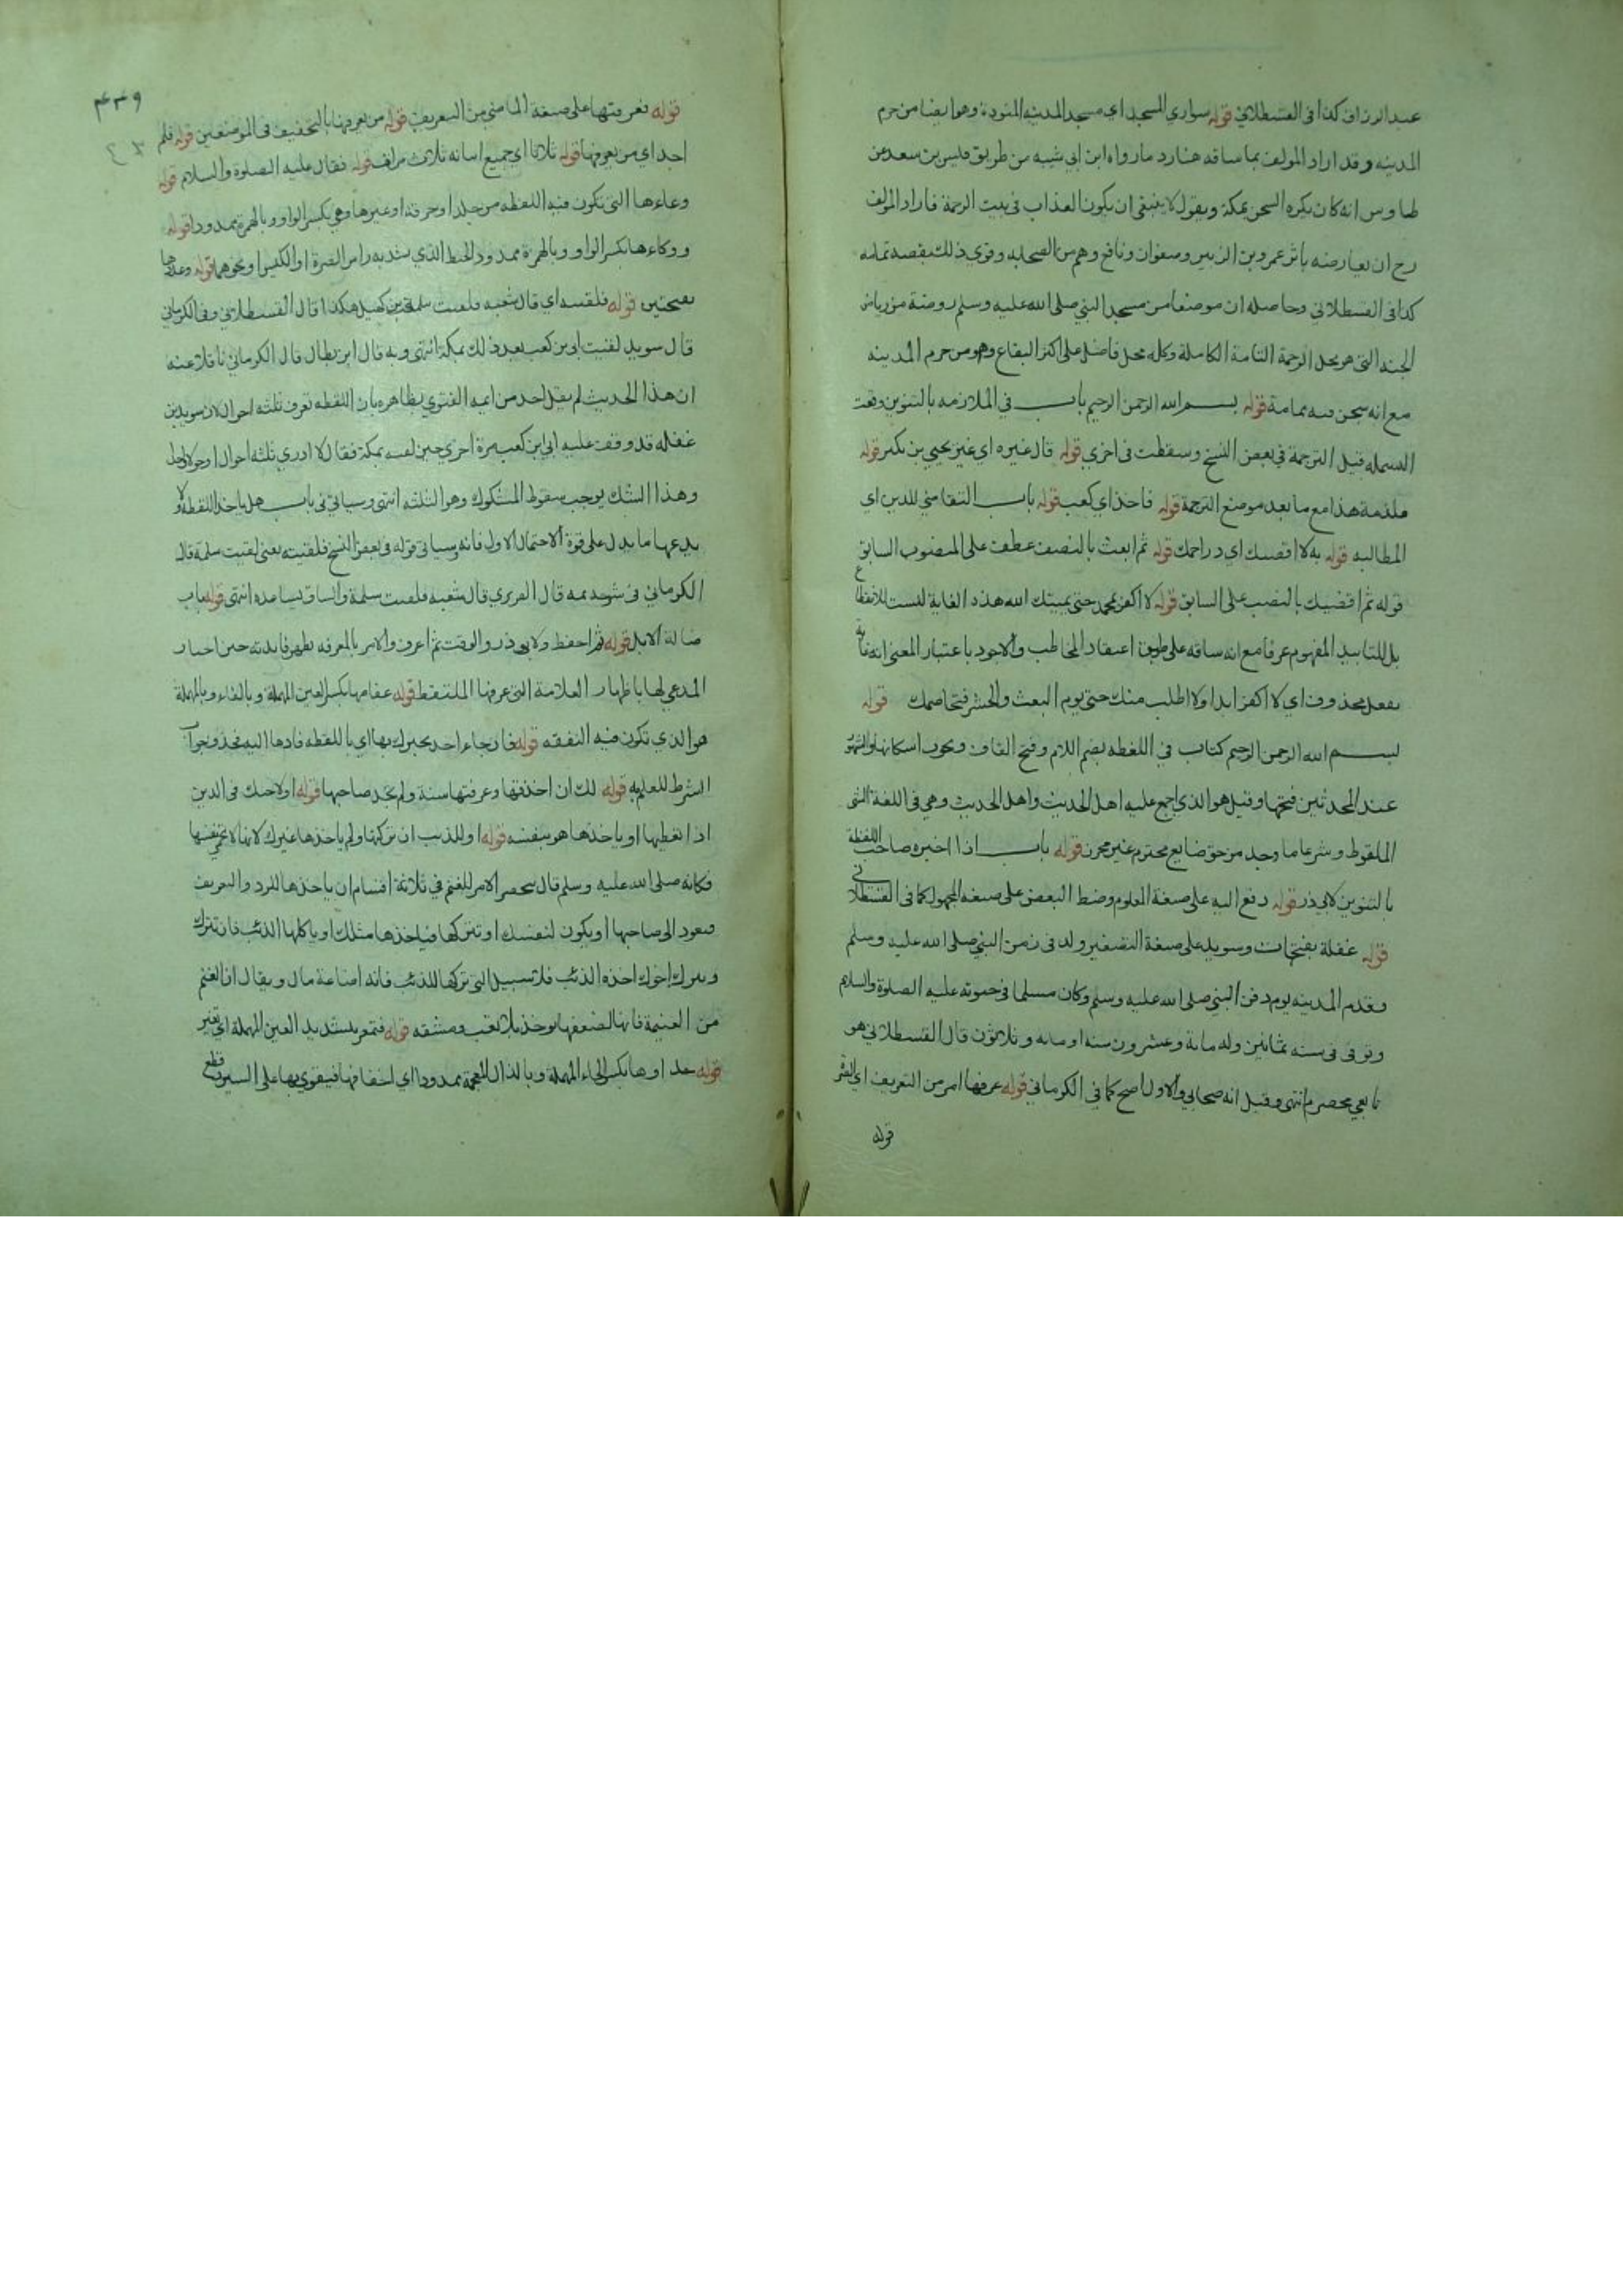 عبد الرزاق كذا في القسطلاني قوله سواري المسجد اي مسجد المدينه المنورة وهو ايضا من حرم
المدينه وقد اراد المولف بما ساقه هنا رد ما رواه ابن ابي شيبه من طريق قيس بن سعد عن
طاوس انه كان يكره السجن بمكة ويقول لا ينبغي ان يكون العذاب في بيت الرحمة فاراد المولف
رح ان يعارضه باثر عمر وبن الزبير وصفوان ونافع وهم من الصحابه وقوي ذلك بقصة ثمامه
كذا في القسطلاني وحاصله ان موضعا من مسجد النبي صلى الله عليه وسلم روضة من رياض
الجنه التي هو محل الرحمة التامة الكاملة وكله محل فاضل على اكثر البقاع وهو من حرم المدينه
مع انه سجن فيه ثمامة قوله بسم الله الرحمن الرحيم باب في الملازمه بالتنوين وقعت
البسمله قبل الترجمة في بعض النسخ وسقطت في اخري قوله قال غيره اي غير يحيي بن بكير قوله
فلزمه هذا مع ما بعد موضع الترجمة قوله فاخذ اي كعب قوله باب التقاضي للدين اي
المطالبه به قوله لا اقضيك اي دراهمك قوله ثم ابعث بالنصف عطف على المنصوب السابق
قوله ثم اقضيك بالنصب على السابق قوله لا اكفر بمحمد حتى يميتك الله هذه الغاية ليست للانقطاع
بل للتابيد المفهوم عرفا مع انه ساقه على طريق اعتقاد المخاطب والاجود باعتبار المعنى انه غاية
بفعل محذوف اي لا اكفر ابدا ولا اطلب منك حتى يوم البعث والحشر فتخاصمك قوله
بسم الله الرحمن الرحيم كتاب في اللقطه بضم اللام وفتح القاف ويجوز اسكانها والمشهور
عند المحدثين فتحها وقيل هو الذي اجمع عليه اهل الحديث واهل الحديث وهي في اللغة الشى
الملقوط وشرعا ما وجد من حق ضايع محترم غير محرز قوله باب اذا اخبره صاحب اللقطة
بالتنوين لابي ذر قوله دفع اليه على صيغة المعلوم وضبط البعض على صيغه المجهول كما في القسطلاني
قوله غفلة بفتحات وسويد على صيغة التصغير ولد في زمن النبي صلى الله عليه وسلم
وقدم المدينه يوم دفن النبي صلى الله عليه وسلم وكان مسلما في حيوته عليه الصلوة والسلام
وتوفى في سنه ثمانين وله مائة وعشرون سنه او مايه وثلاثون قال القسطلاني هو
تابعي مخضرم انتهى وقيل انه صحابي والاول اصح كما في الكرماني قوله عرفها امر من التعريف اي
قوله
٤٣٩
قوله فعرفتها على صيغة الماضي من التعريف قوله من يعرفها بالتخفيف في الموضعين قوله فلم
اجد اي من يعرفها قوله ثلاثا اي جميع اتيانه ثلاث مرات قوله فقال عليه الصلوة والسلام قوله
وعاءها التى تكون فيه اللقطه من جلد او خرقة او غيرها وهي بكسر الواو وبالهمزة ممدودا قوله
ووكاءها بكسر الواو وبالهمزة ممدود الخيط الذي يشد به راس الصرة او الكيس او نحوهما قوله وعددها
بفتحتين قوله فلقيته اي قال شعبه فلقيت سلمة بن كهيل هكذا قال القسطلاني وفي الكرماني
قال سويد لقيت ابي بن كعب بعد ذلك بمكة انتهى وبه قال ابن بطال قال الكرماني ناقلا عنه
ان هذا الحديث لم يقل احد من ايمه الفتوي بظاهره بان اللقطه تعرف ثلثه احوال لان سويد بن
غفله قد وقف عليه ابي بن كعب مرة اخري حين لقيه بمكة فقال لا ادري ثلثه احوال او حولا واحدا
وهذا الشك يوجب سقوط المشكوك وهو الثلثه انتهى وسياتي في باب هل ياخذ اللقطة ولا
يدعها ما يدل على قوة الاحتمال الاول فانه وسياتي قوله في بعض النسخ فلقيته يعني لقيت سلمة قال
الكرماني في شرحه قال الفربري قال شعبه فلقيت سلمة والساق يساعده انتهى قوله باب
ضالة الابل قوله ثم احفظ ولابي ذر والوقت ثم اعرف والامر بالمعرفه تظهر فايدته حين اخبار
المدعي لها باظهار العلامة التى عرفها الملتقط قوله عفاصها بكسر العين المهملة وبالفاء وبالمهملة
هو الذي تكون فيه النفقه قوله فان جاء احد يخبرك بها اي باللقطه فادها اليه فحذف جواب
الشرط للعلم به قوله لك ان اخذتها وعرفتها سنة ولم تجد صاحبها قوله او لاخيك في الدين
اذا تعطيها او ياخذها هو بنفسه قوله او للذيب ان تركتها ولم ياخذها غيرك لانها لا تحمي نفسها
فكانه صلى الله عليه وسلم قال ينحصر الامر للغنم في ثلاثة اقسام ان ياخذها للرد والتعريف
فيعود الى صاحبها او يكون لنفسك او تتركها فياخذها مثلك او ياكلها الذئب فان تتركه
ويتركه اخوك اخذه الذئب فلا سبيل الى تركها للذئب فانه اضاعة مال ويقال ان الغنم
من الغنيمة فانها لضعفها يوخذ بلا تعب ومشقه قوله فتمعر بتشديد العين المهملة اي تغير
قوله حذاوها بكسر الحاء المهملة وبالذال المعجمة ممدودا اي اخفافها فيقوي بها على السير وقطع